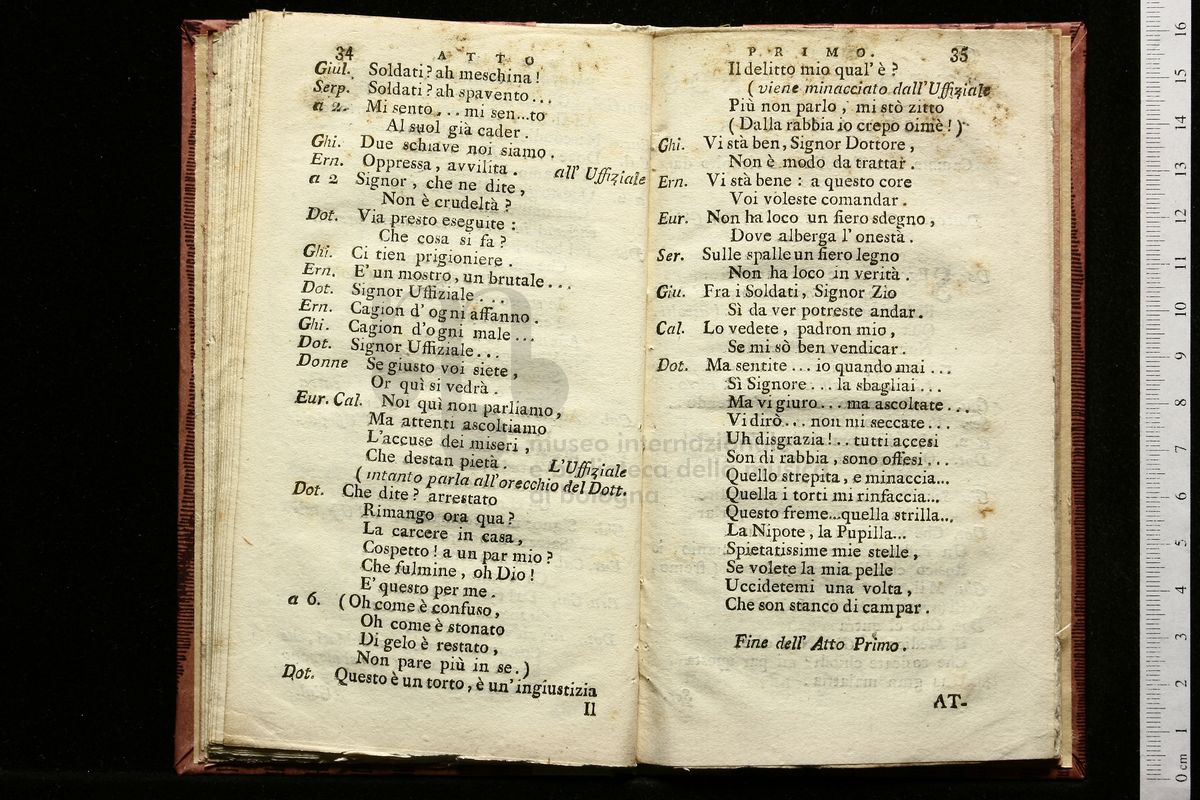 34 ATTO
Giul. Soldati? ah meschina!
Serp. Soldati? ah spavento...
a 2. Mi sento... mi sen...to
Al suol già cader.
Ghi. Due schiave noi siamo.
Ern. Oppressa, avvilita. all' Uffiziale
a 2 Signor, che ne dite,
Non è crudeltà?
Dot. Via presto eseguite:
Che cosa si fa?
Ghi. Ci tien prigioniere.
Ern. E' un mostro, un brutale...
Dot. Signor Uffiziale...
Ern. Cagion d'ogni affanno.
Ghi. Cagion d'ogni male...
Dot. Signor Uffiziale...
Donne Se giusto voi siete,
Or quì si vedrà.
Eur. Cal. Noi quì non parliamo,
Ma attenti ascoltiamo
L'accuse dei miseri,
Che destan pietà. L'Uffiziale
(intanto parla all'orecchio del Dott.
Dot. Che dite? arrestato
Rimango ora qua?
La carcere in casa,
Cospetto! a un par mio?
Che fulmine, oh Dio!
E' questo per me.
a 6. (Oh come è confuso,
Oh come è stonato
Di gelo è restato,
Non pare più in se.)
Dot. Questo è un torto, è un'ingiustizia
Il
PRIMO. 35
Il delitto mio qual' è?
(viene minacciato dall'Uffiziale
Più non parlo, mi stò zitto
(Dalla rabbia io crepo oimè!)
Ghi. Vi stà ben, Signor Dottore,
Non è modo da trattar.
Ern. Vi stà bene: a questo core
Voi voleste comandar.
Eur. Non ha loco un fiero sdegno,
Dove alberga l'onestà.
Ser. Sulle spalle un fiero legno
Non ha loco in verità.
Giu. Fra i Soldati, Signor Zio
Sì da ver potreste andar.
Cal. Lo vedete, padron mio,
Se mi sò ben vendicar.
Dot. Ma sentite... io quando mai...
Sì Signore... la sbagliai...
Ma vi giuro... ma ascoltate...
Vi dirò... non mi seccate...
Uh disgrazia!.. tutti accesi
Son di rabbia, sono offesi...
Quello strepita, e minaccia...
Quella i torti mi rinfaccia...
Questo freme...quella strilla...
La Nipote, la Pupilla...
Spietatissime mie stelle,
Se volete la mia pelle
Uccidetemi una volta,
Che son stanco di campar.
Fine dell' Atto Primo.
AT-
museo internazionale
e biblioteca della musica
di bologna
0 cm 1 2 3 4 5 6 7 8 9 10 11 12 13 14 15 16